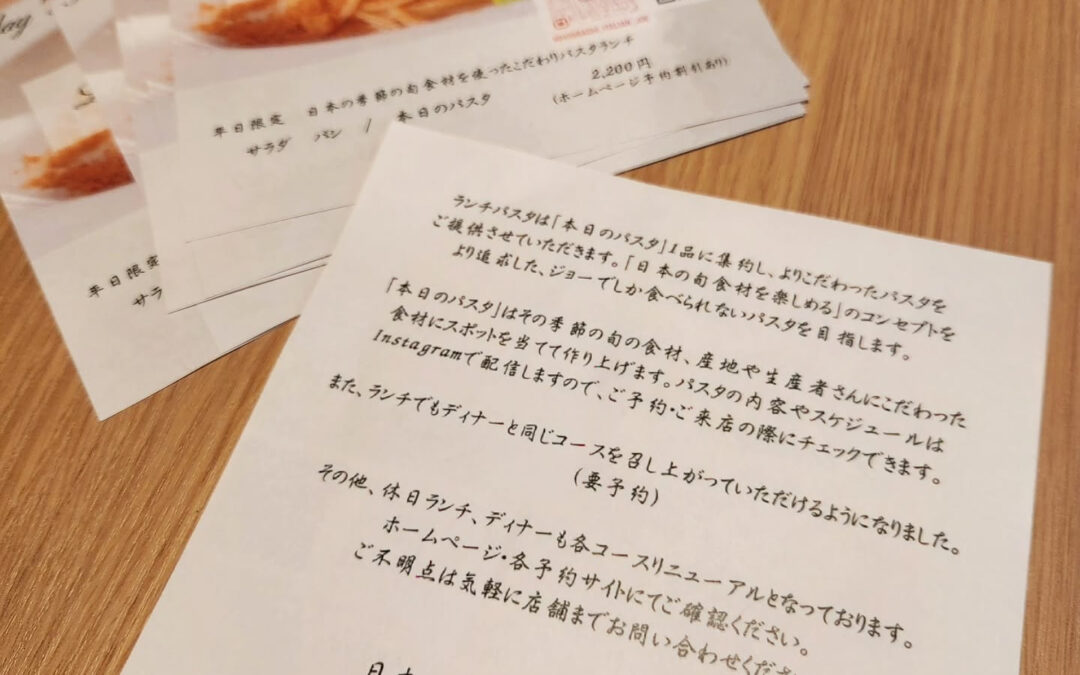 平日限定 日本の季節の旬食材を使ったこだわりパスタランチ
サラダ パン / 本日のパスタ 2,200円
(ホームページ予約割引あり)
平日限定
サラ
ランチパスタは「本日のパスタ」1品に集約し、よりこだわったパスタを
ご提供させていただきます。「日本の旬食材を楽しめる」のコンセプトを
より追求した、ジョーでしか食べられないパスタを目指します。
「本日のパスタ」はその季節の旬の食材、産地や生産者さんにこだわった
食材にスポットを当てて作り上げます。パスタの内容やスケジュールは
Instagramで配信しますので、ご予約・ご来店の際にチェックできます。
また、ランチでもディナーと同じコースを召し上がっていただけるようになりました。
(要予約)
その他、休日ランチ、ディナーも各コースリニューアルとなっております。
ホームページ・各予約サイトにてご確認ください。
ご不明点は気軽に店舗までお問い合わせくださ